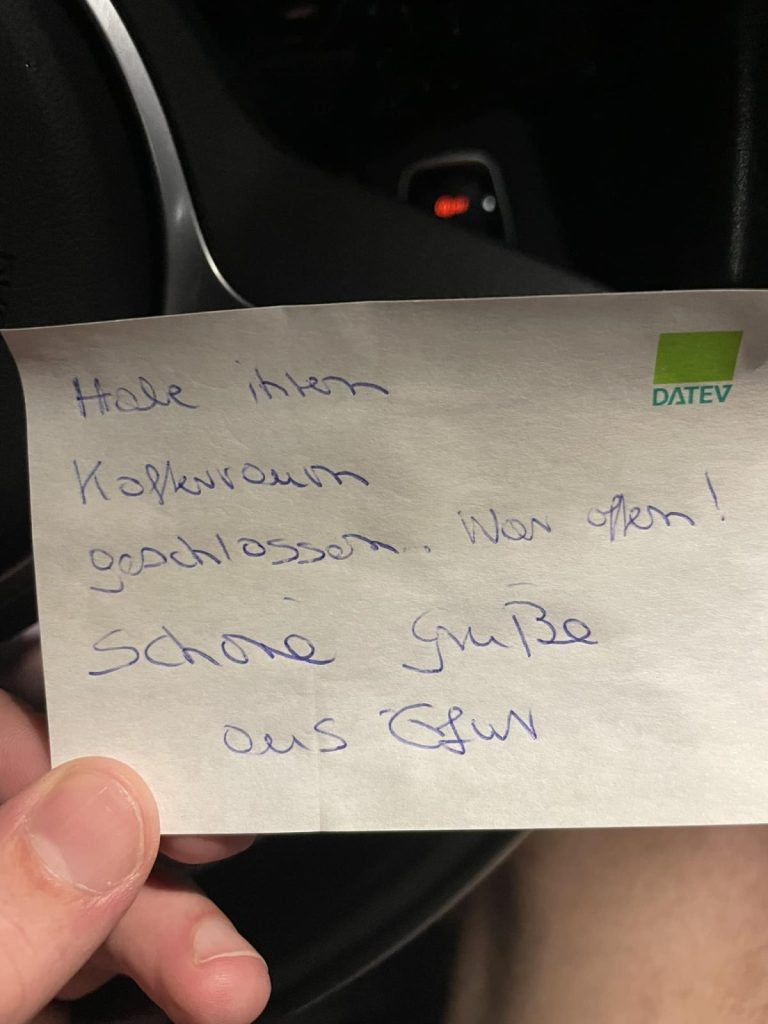 DATEV
Habe ihren
Kofferraum
geschlossen. War offen!
Schöne Grüße
aus Erfurt